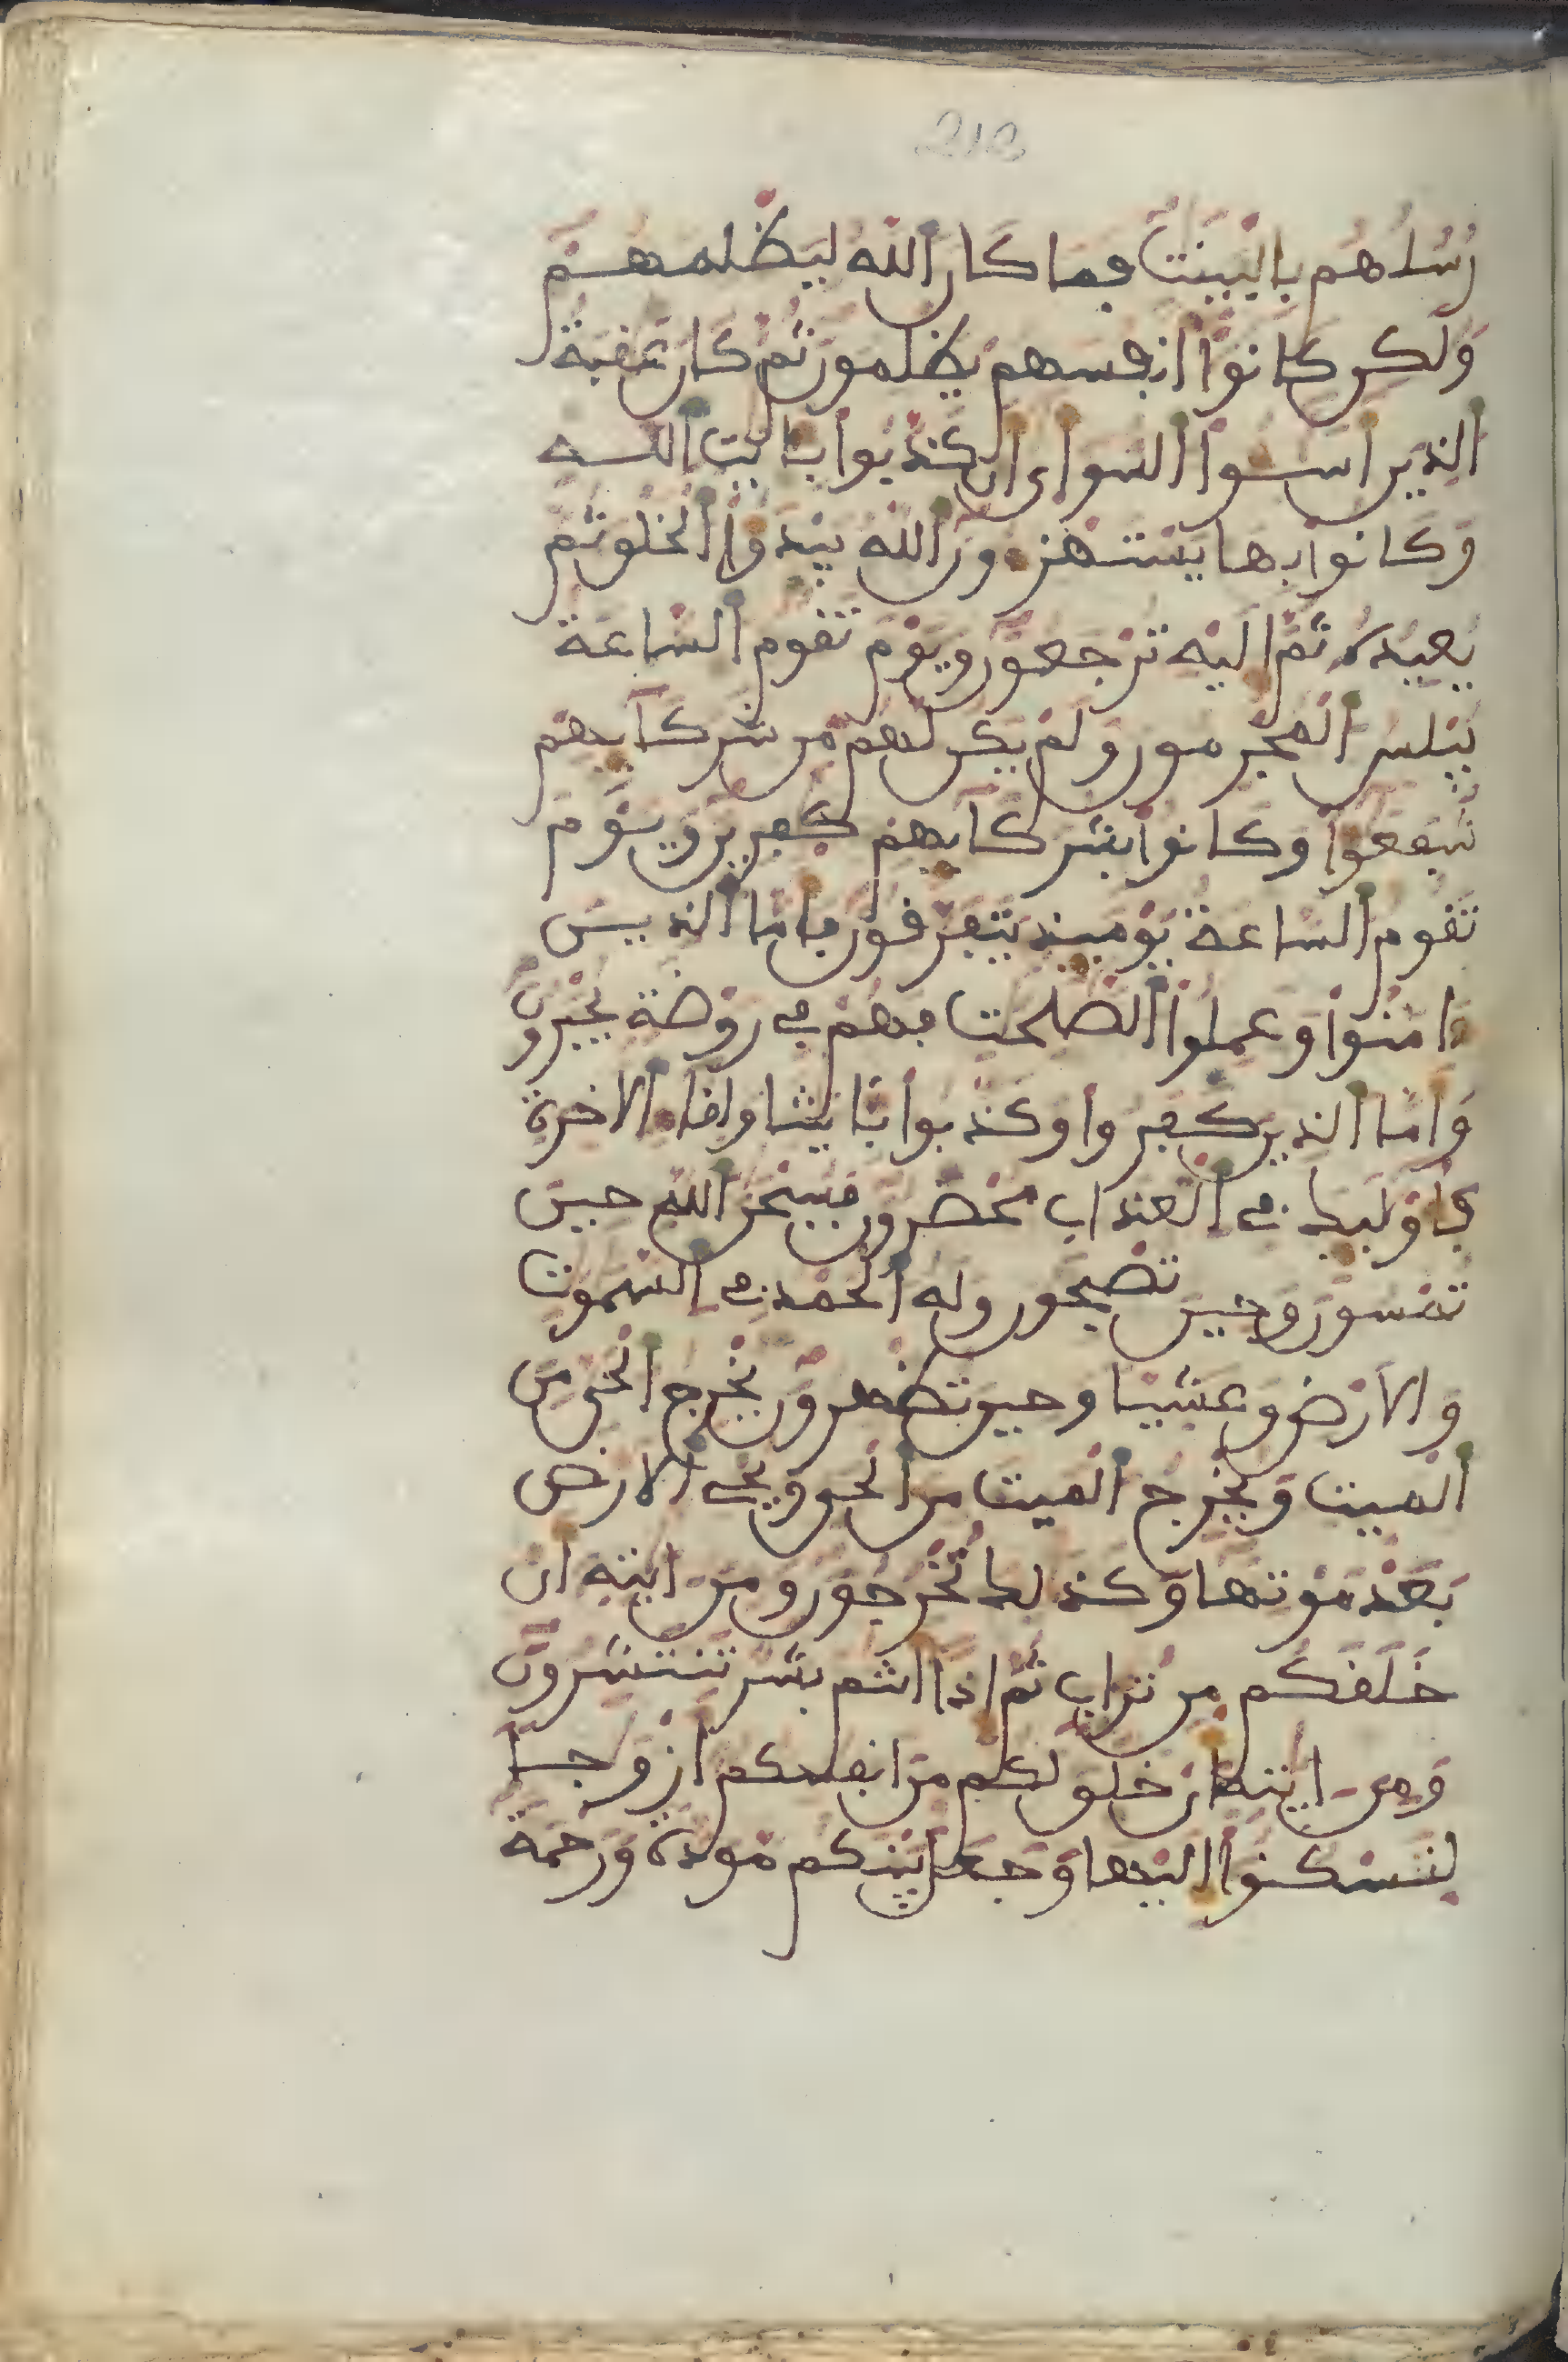 213
رسلهم بالبينت فما كان الله ليظلمهم
ولكن كانوا انفسهم يظلمون ثم كان عقبة
الذين اسـوا السواى ان كذبوا بايت اللـه
وكانوا بها يستهزءون الله يبدوا الخلق ثم
يعيده ثم اليه ترجعون ويوم تقوم الساعة
يبلس المجرمون ولم يكن لهم من شركايهم
شفعوا وكانوا بشركايهم كفرين ويوم
تقوم الساعة يوميذ يتفرقون فاما الذين
ءامنوا وعملوا الصلحت فهم في روضة يحبرون
واما الذين كفروا وكذبوا بايتنا ولقاء الاخرة
فاوليك في العذاب محضرون فسبحن الله حين
تمسون وحين تصبحون وله الحمد في السموت
والارض وعشيا وحين تظهرون يخرج الحي من
الميت ويخرج الميت من الحي ويحي الارض
بعد موتها وكذلك تخرجون ومن ايته ان
خلقكم من تراب ثم اذا انتم بشر تنتشرون
ومن ايته ان خلق لكم من انفسكم ازوجا
لتسكنوا اليها وجعل بينكم مودة ورحمة